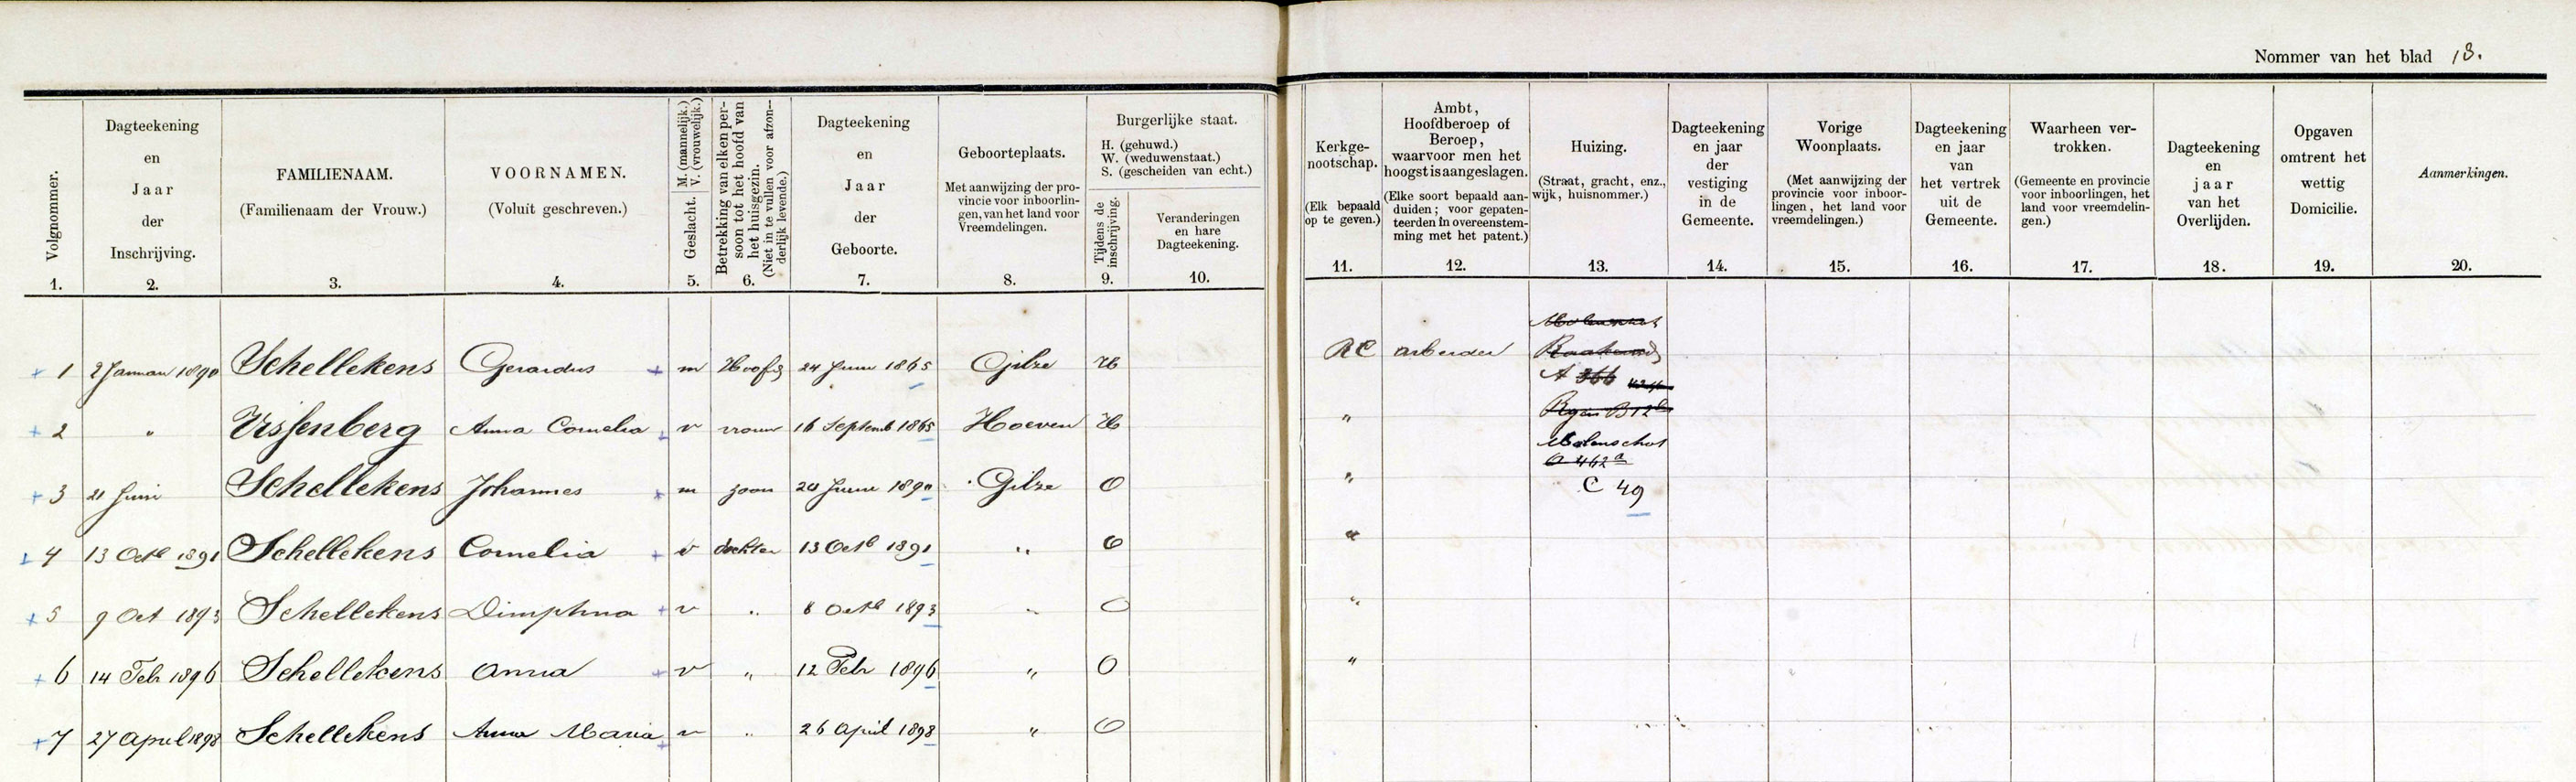 Nommer van het blad 13.
Volgnommer.
1.
Dagteekening
en
Jaar
der
Inschrijving.
2.
FAMILIENAAM.
(Familienaam der Vrouw.)
3.
VOORNAMEN.
(Voluit geschreven.)
4.
Geslacht. M. (mannelijk.)
V. (vrouwelijk.)
5.
Betrekking van elken per-
soon tot het hoofd van
het huisgezin.
(Niet in te vullen voor afzon-
derlijk levende.)
6.
Dagteekening
en
Jaar
der
Geboorte.
7.
Geboorteplaats.
Met aanwijzing der pro-
vincie voor inboorlin-
gen, van het land voor
Vreemdelingen.
8.
Burgerlijke staat.
H. (gehuwd.)
W. (weduwenstaat.)
S. (gescheiden van echt.)
Tijdens de
inschrijving.
9.
Veranderingen
en hare
Dagteekening.
10.
Kerkge-
nootschap.
(Elk bepaald
op te geven.)
11.
Ambt,
Hoofdberoep of
Beroep,
waarvoor men het
hoogst is aangeslagen.
(Elke soort bepaald aan-
duiden; voor gepaten-
teerden in overeenstem-
ming met het patent.)
12.
Huizing.
(Straat, gracht, enz.,
wijk, huisnommer.)
13.
Dagteekening
en jaar
der
vestiging
in de
Gemeente.
14.
Vorige
Woonplaats.
(Met aanwijzing der
provincie voor inboor-
lingen, het land voor
vreemdelingen.)
15.
Dagteekening
en jaar
van
het vertrek
uit de
Gemeente.
16.
Waarheen ver-
trokken.
(Gemeente en provincie
voor inboorlingen, het
land voor vreemdelin-
gen.)
17.
Dagteekening
en
jaar
van het
Overlijden.
18.
Opgaven
omtrent het
wettig
Domicilie.
19.
Aanmerkingen.
20.
+ 1 2 Januari 1890 Schellekens Gerardus + m Hoofd 24 Juni 1865 Gilze H RC arbeider
A 366
+ 2 " Vissenberg Anna Cornelia + v vrouw 16 Septemb 1865 Hoeven H "
Rijen B 12
Molenschot
+ 3 21 Juni Schellekens Johannes + m zoon 20 Juni 1890 Gilze O "
C 462a
C 49
+ 4 13 Octb 1891 Schellekens Cornelia + v dochter 13 Octb 1891 " O "
+ 5 9 Oct 1893 Schellekens Dimphna + v " 8 Octb 1893 " O "
+ 6 14 Febr 1896 Schellekens Anna + v " 12 Febr 1896 " O "
+ 7 27 April 1898 Schellekens Anna Maria + v " 26 April 1898 " O